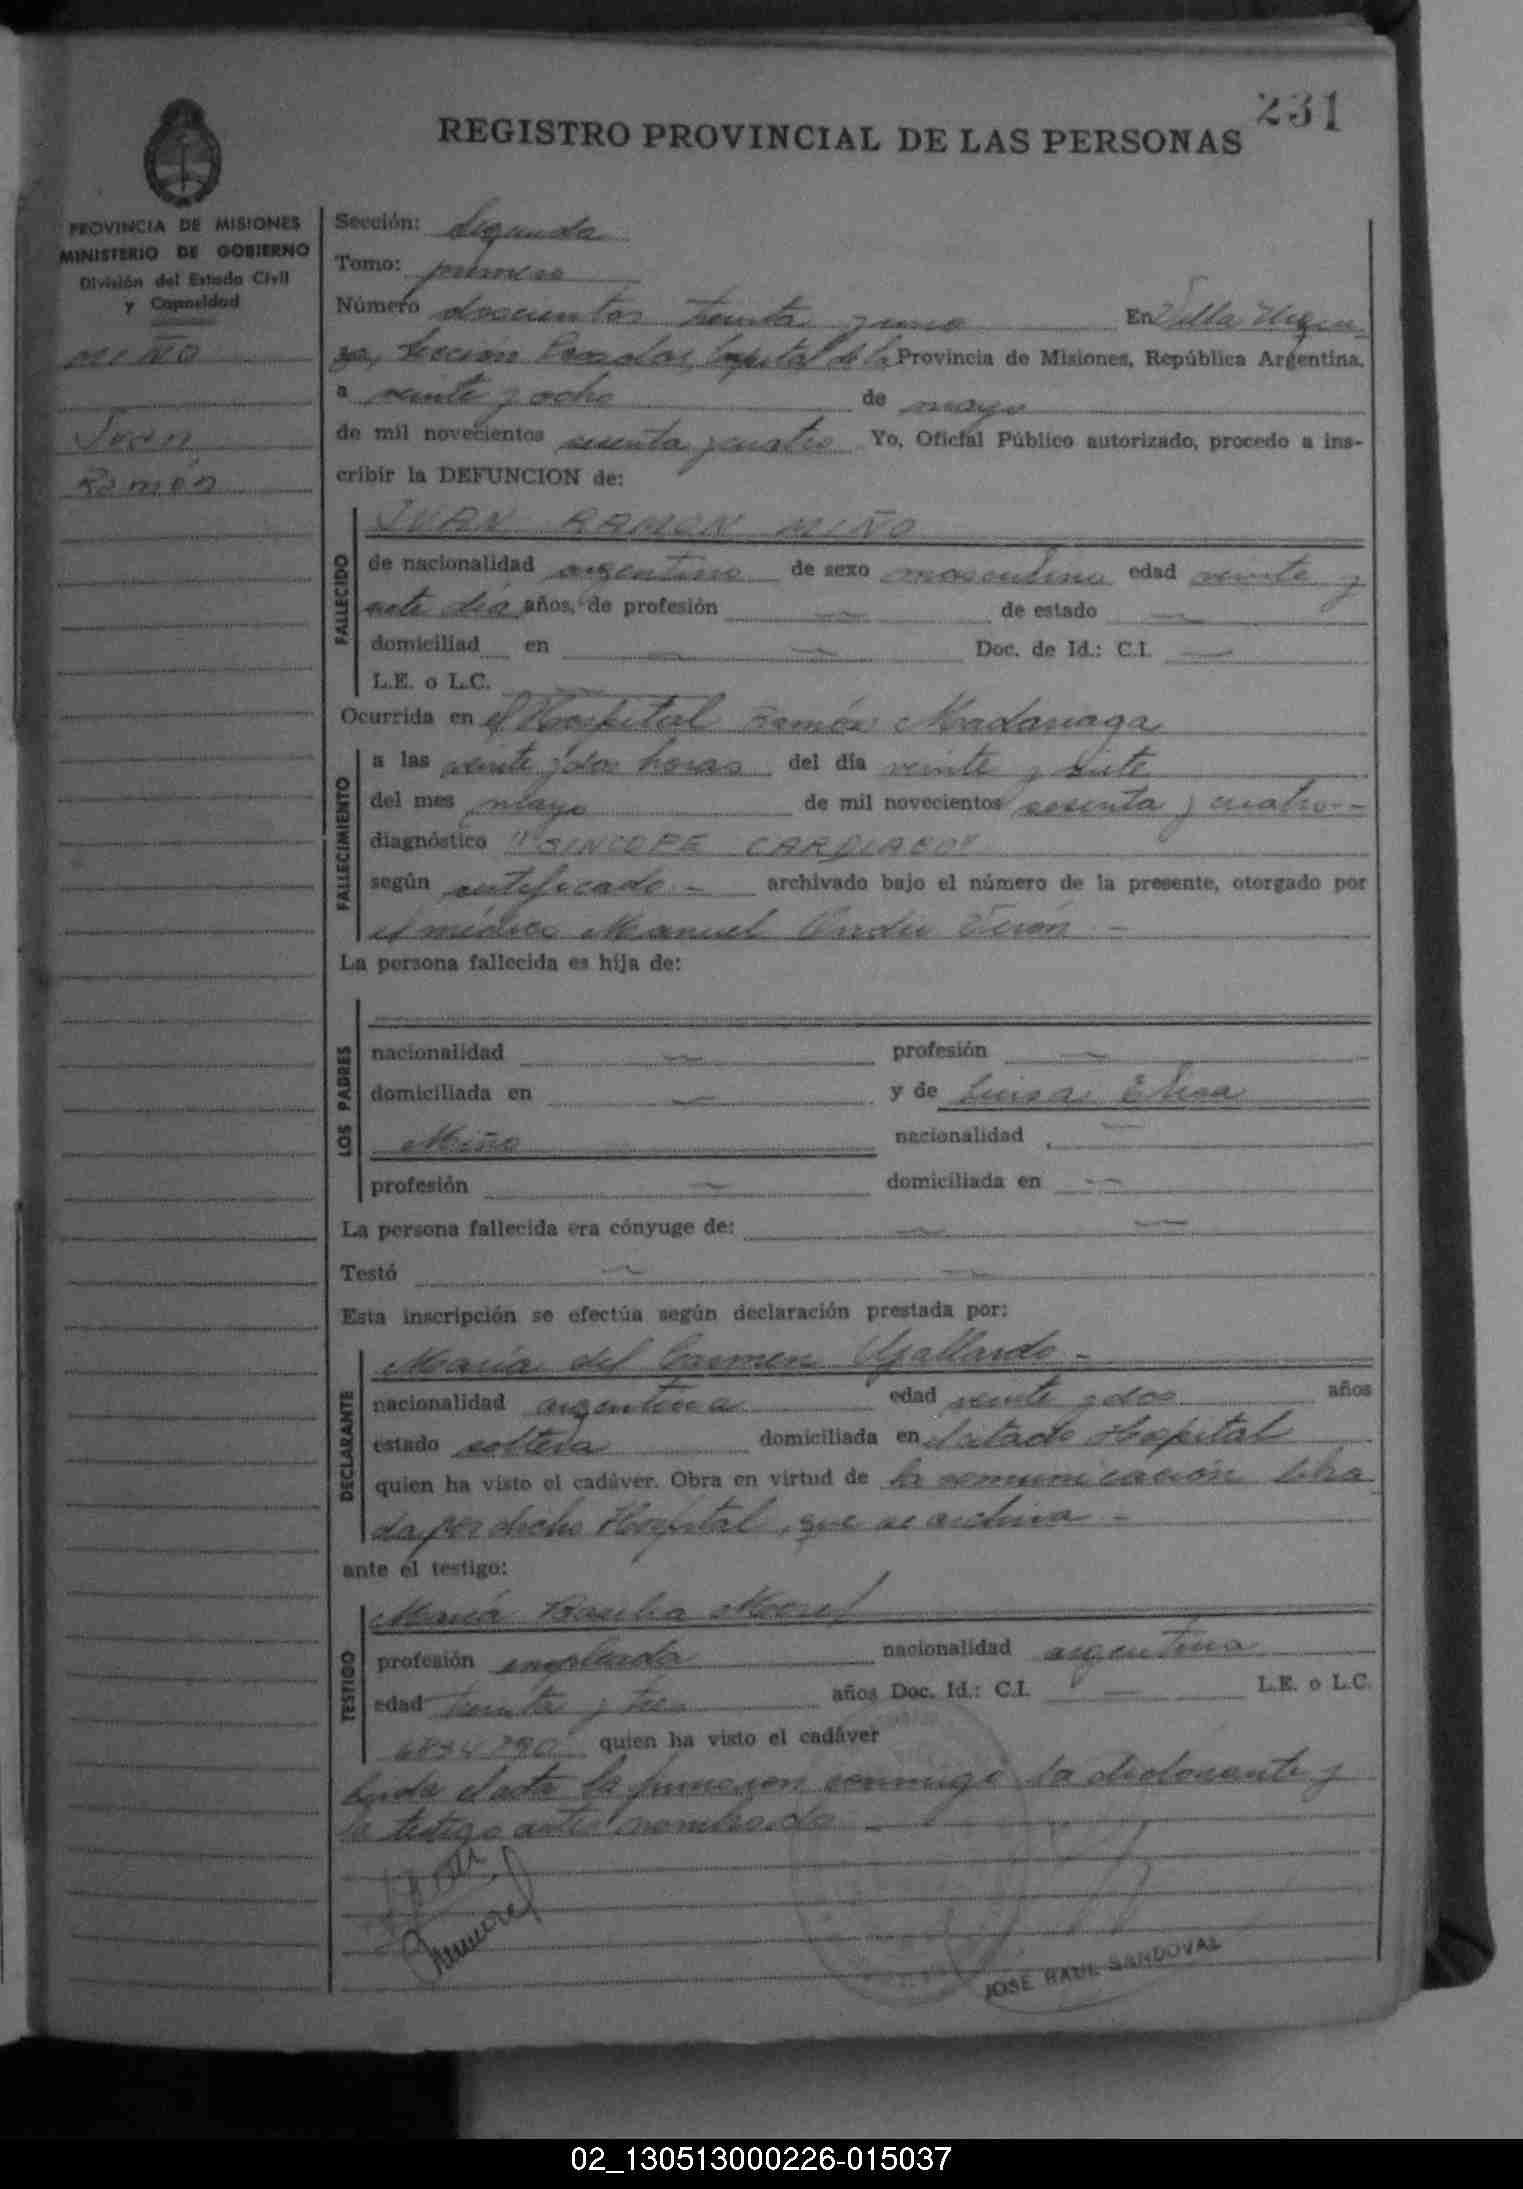 231
REGISTRO PROVINCIAL DE LAS PERSONAS
PROVINCIA DE MISIONES
MINISTERIO DE GOBIERNO
División del Estado Civil
y Capacidad
MIÑO
Juan
Ramón
Sección: Segunda
Tomo: primero
Número doscientos treinta y uno En Villa Urqui
za, Sección Posadas, Capital de la Provincia de Misiones, República Argentina,
a veinte y ocho de mayo
de mil novecientos sesenta y cuatro Yo, Oficial Público autorizado, procedo a ins-
cribir la DEFUNCION de:
FALLECIDO
JUAN RAMON MIÑO
de nacionalidad argentino de sexo masculino edad veinte y
siete días años, de profesión — de estado —
domiciliad en — — Doc. de Id.: C.I. —
L.E. o L.C. —
Ocurrida en el Hospital Ramón Madariaga
FALLECIMIENTO
a las veinte y dos horas del día veinte y siete
del mes mayo de mil novecientos sesenta y cuatro--
diagnóstico "SINCOPE CARDIACO"
según certificado - archivado bajo el número de la presente, otorgado por
el médico Manuel -
La persona fallecida es hija de:
LOS PADRES
nacionalidad — profesión —
domiciliada en — y de Luisa Elisa
Miño nacionalidad —
profesión — domiciliada en —
La persona fallecida era cónyuge de: — —
Testó — —
Esta inscripción se efectúa según declaración prestada por:
DECLARANTE
María del Carmen Gallardo -
nacionalidad argentina edad veinte y dos años
estado soltera domiciliada en el citado Hospital
quien ha visto el cadáver. Obra en virtud de la comunicación libra
da por dicho Hospital, que se archiva -
ante el testigo:
TESTIGO
María Basilia Morel
profesión empleada nacionalidad argentina
edad treinta y tres años Doc. Id.: C.I. — L.E. o L.C.
quien ha visto el cadáver
Leída el acta la firmaron conmigo la declarante y
la testigo antes nombrada -
JOSE RAUL SANDOVAL
02_130513000226-015037